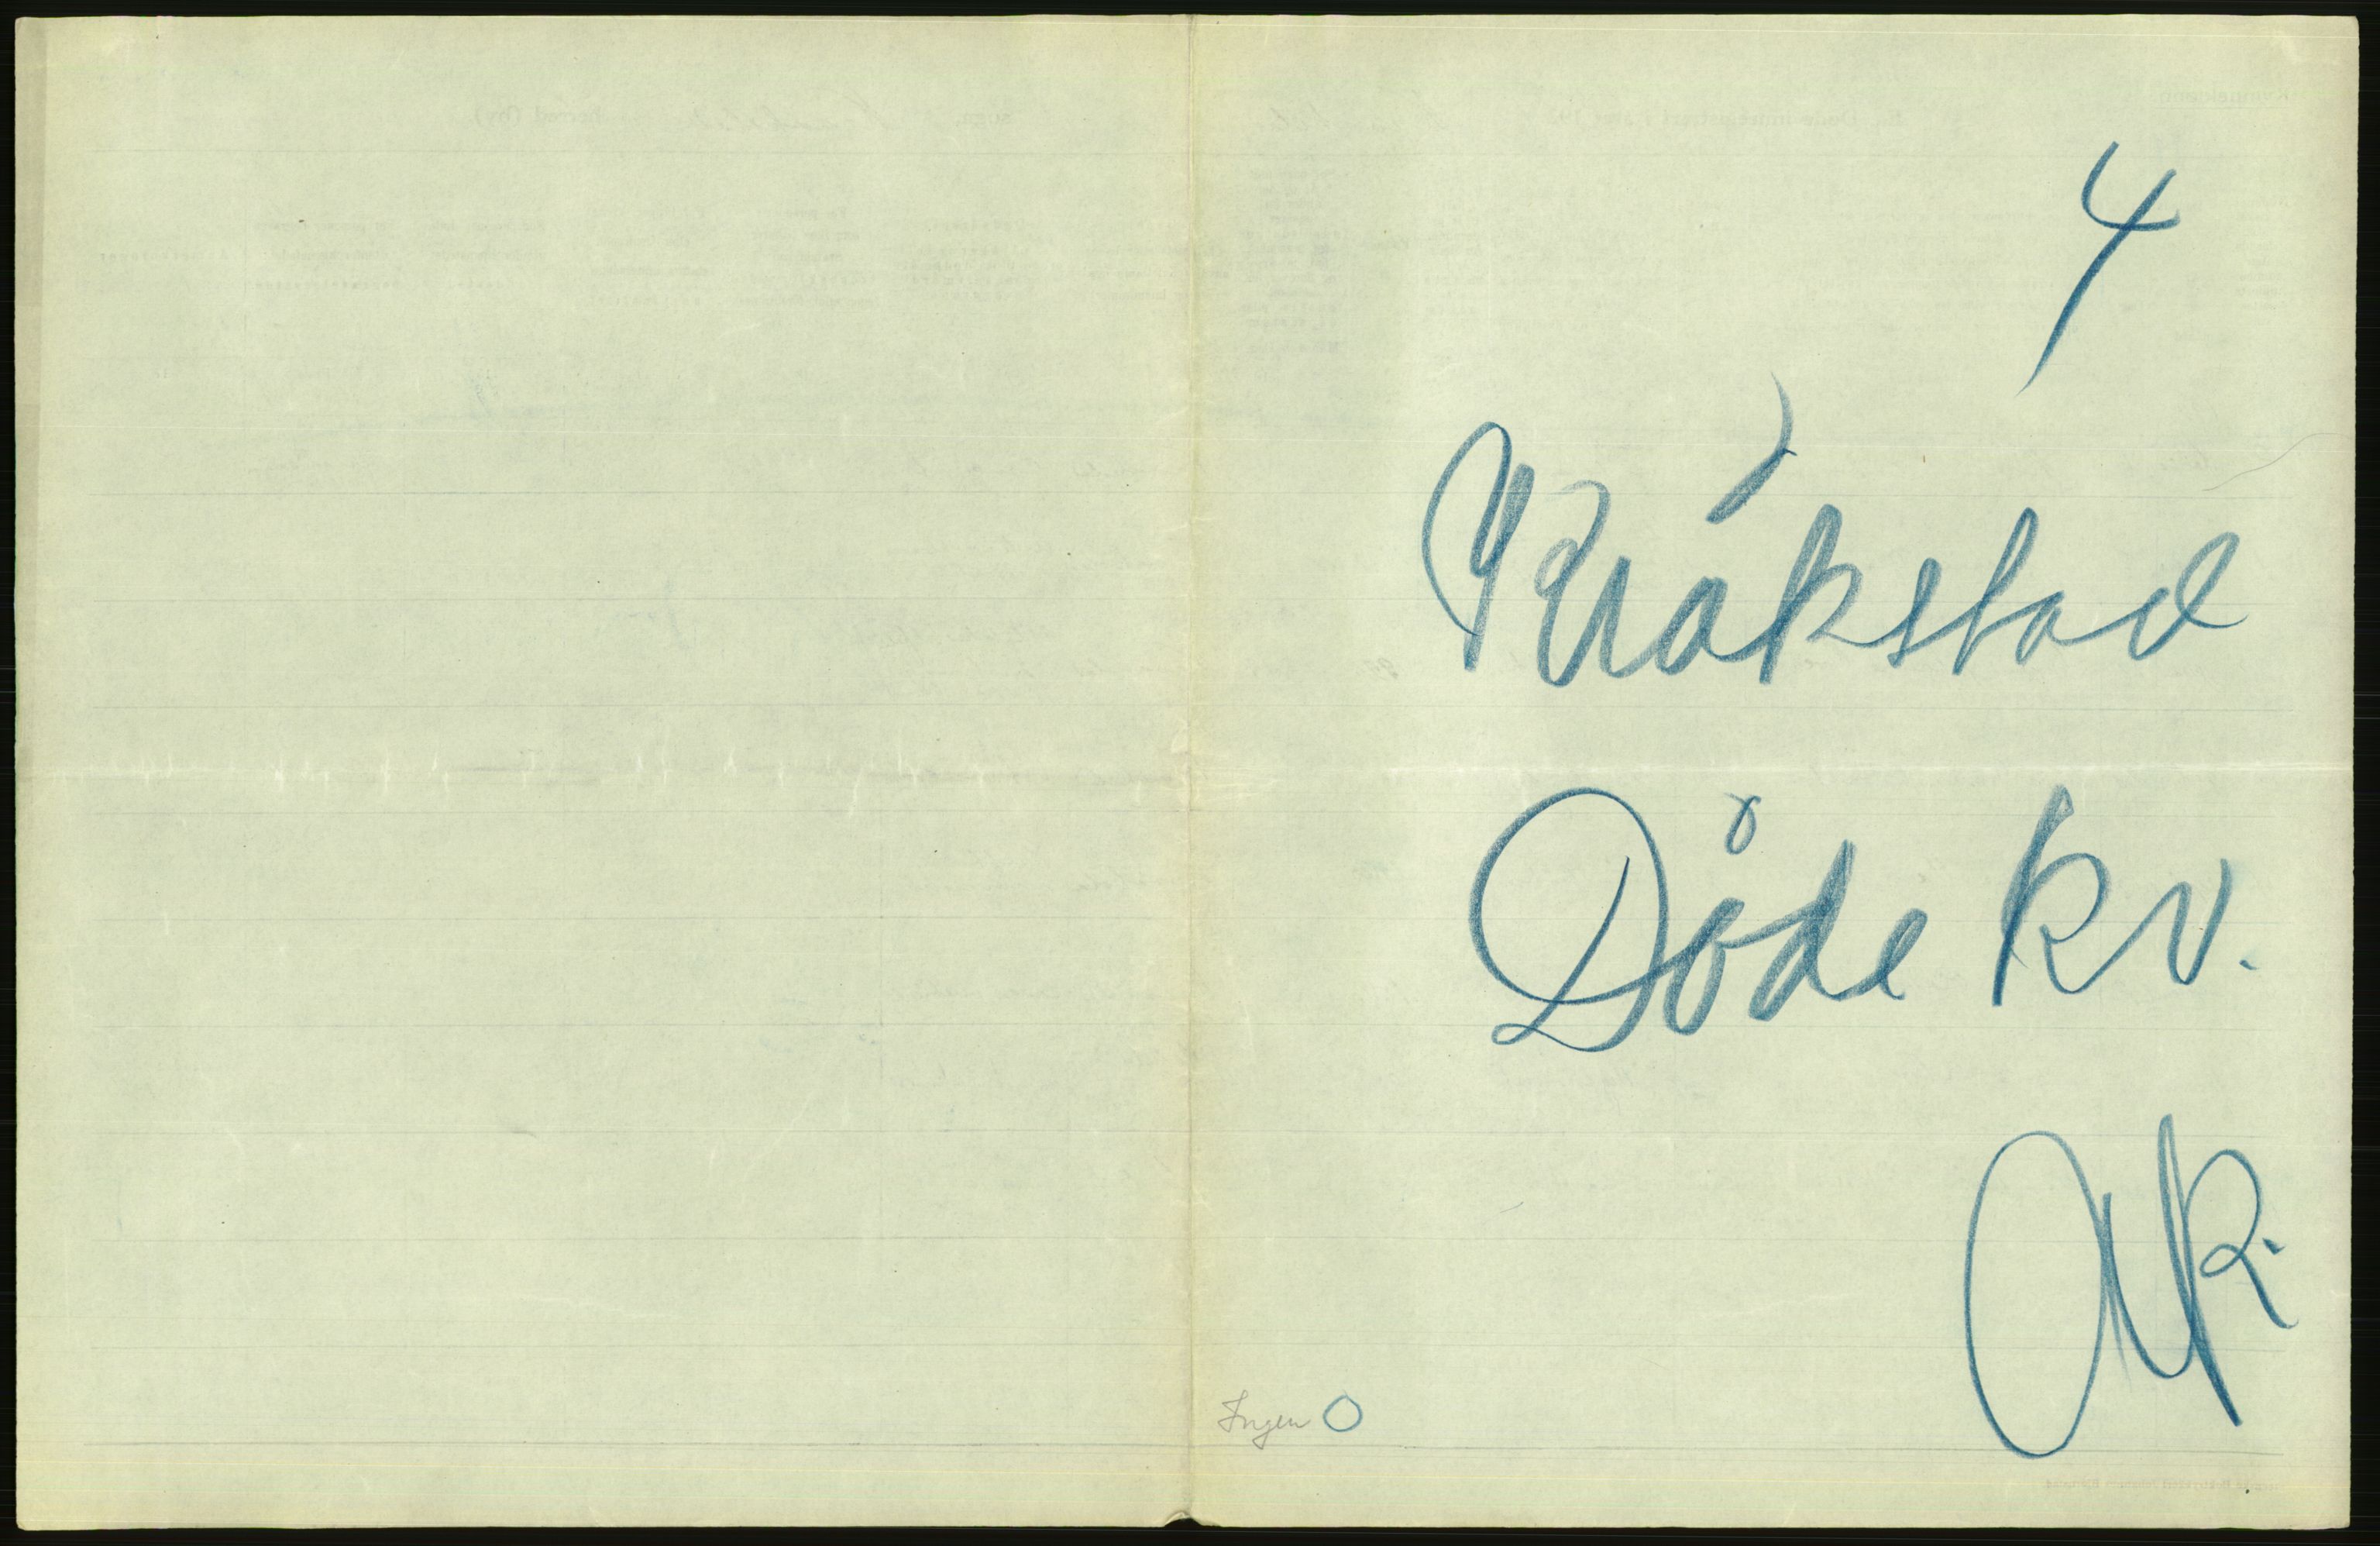 4
Kråkstad
Døde kv.
Ak.
Ingen O